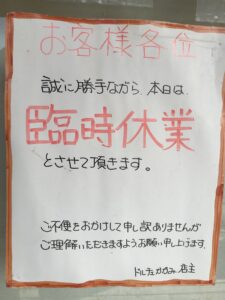 お客様各位
誠に勝手ながら、本日は、
臨時休業
とさせて頂きます。
ご不便をおかけして申し訳ありませんが
ご理解いただきますようお願い申し上げます。
ドルチェかがみ 店主